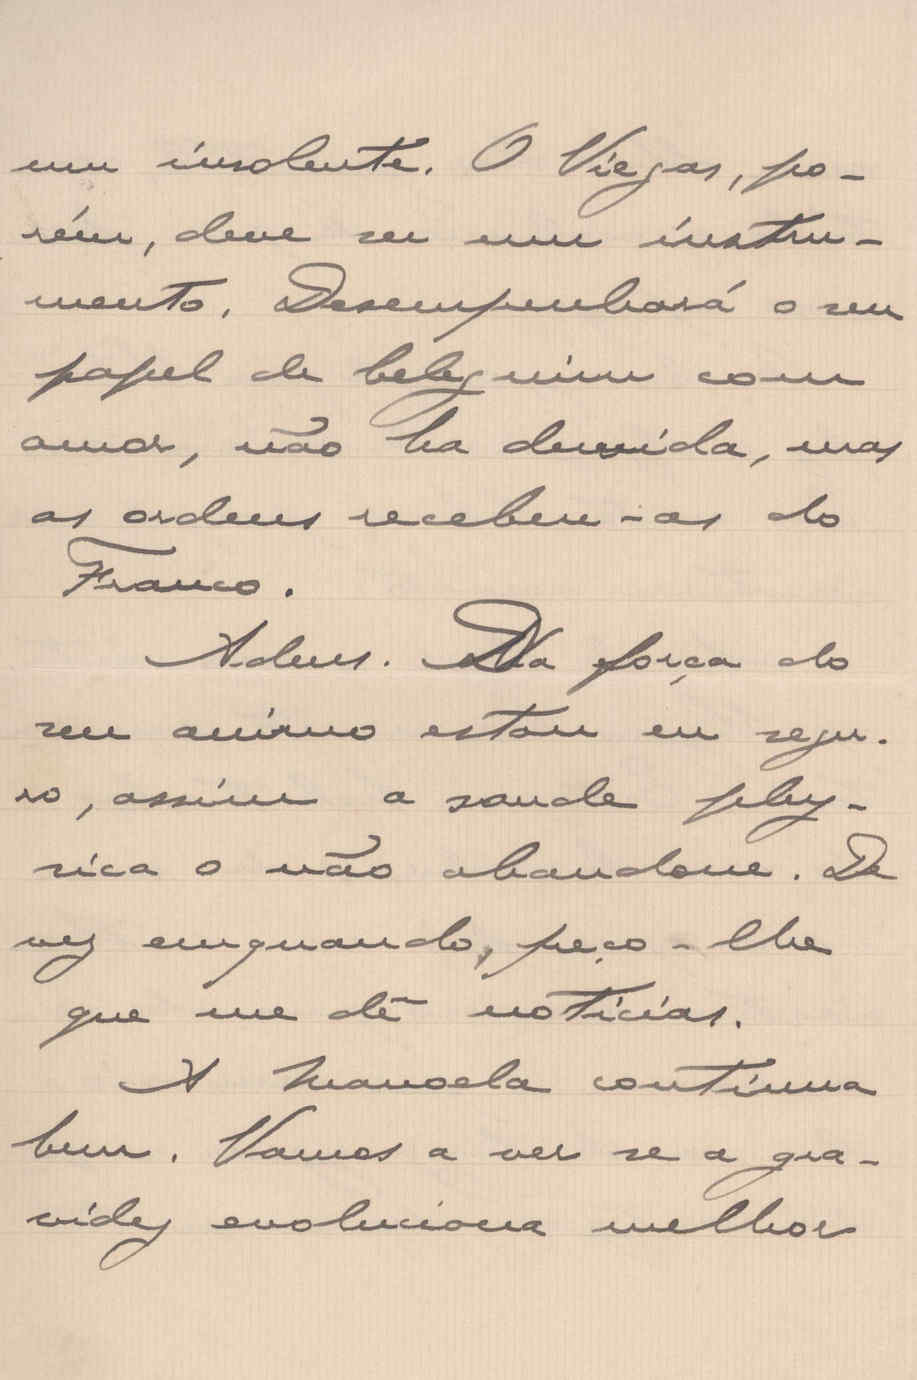 um insolente. O Viegas, po-
rém, deve ser um instru-
mento. Desempenhará o seu
papel de beleguim com
amor, não ha duvida, mas
as ordens recebeu-as do
Franco.
Adeus. Da força do
seu animo estou eu segu-
ro, assim a saude phy-
sica o não abandone. De
vez emquando, peço-lhe
que me dê noticias.
A Manoela continua
bem. Vamos a ver se a gra-
videz evoluciona melhor